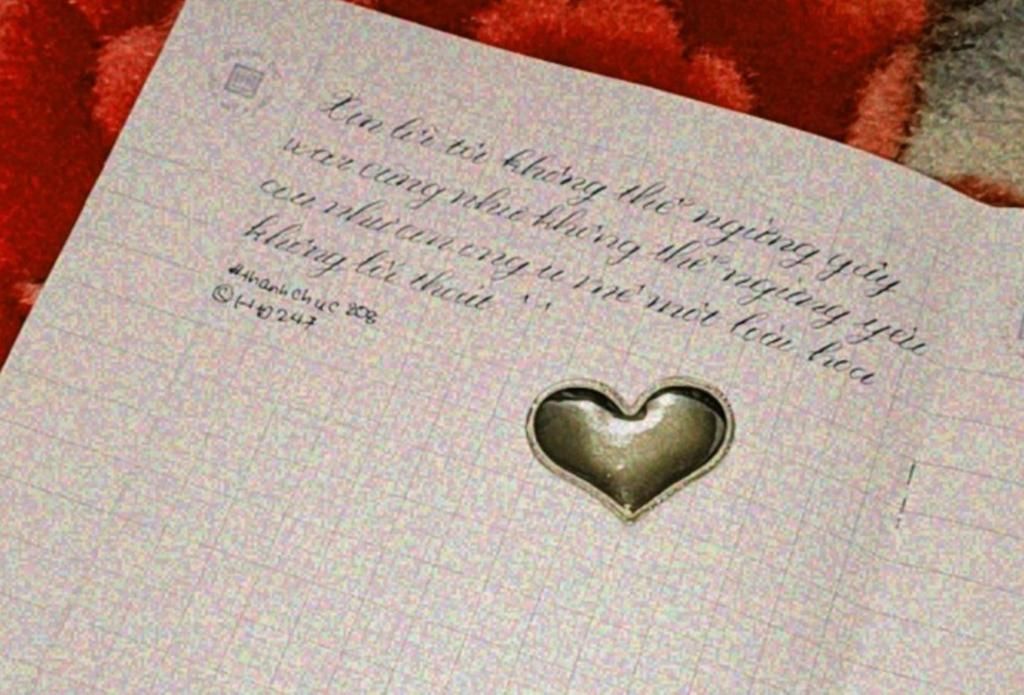 Xin lỗi tôi không thể ngừng gây
war cũng như không thể ngừng yêu
cou như cun ong u mê một loài hoa
không lối thoát ^^
#thanhchuc 808
© H10247